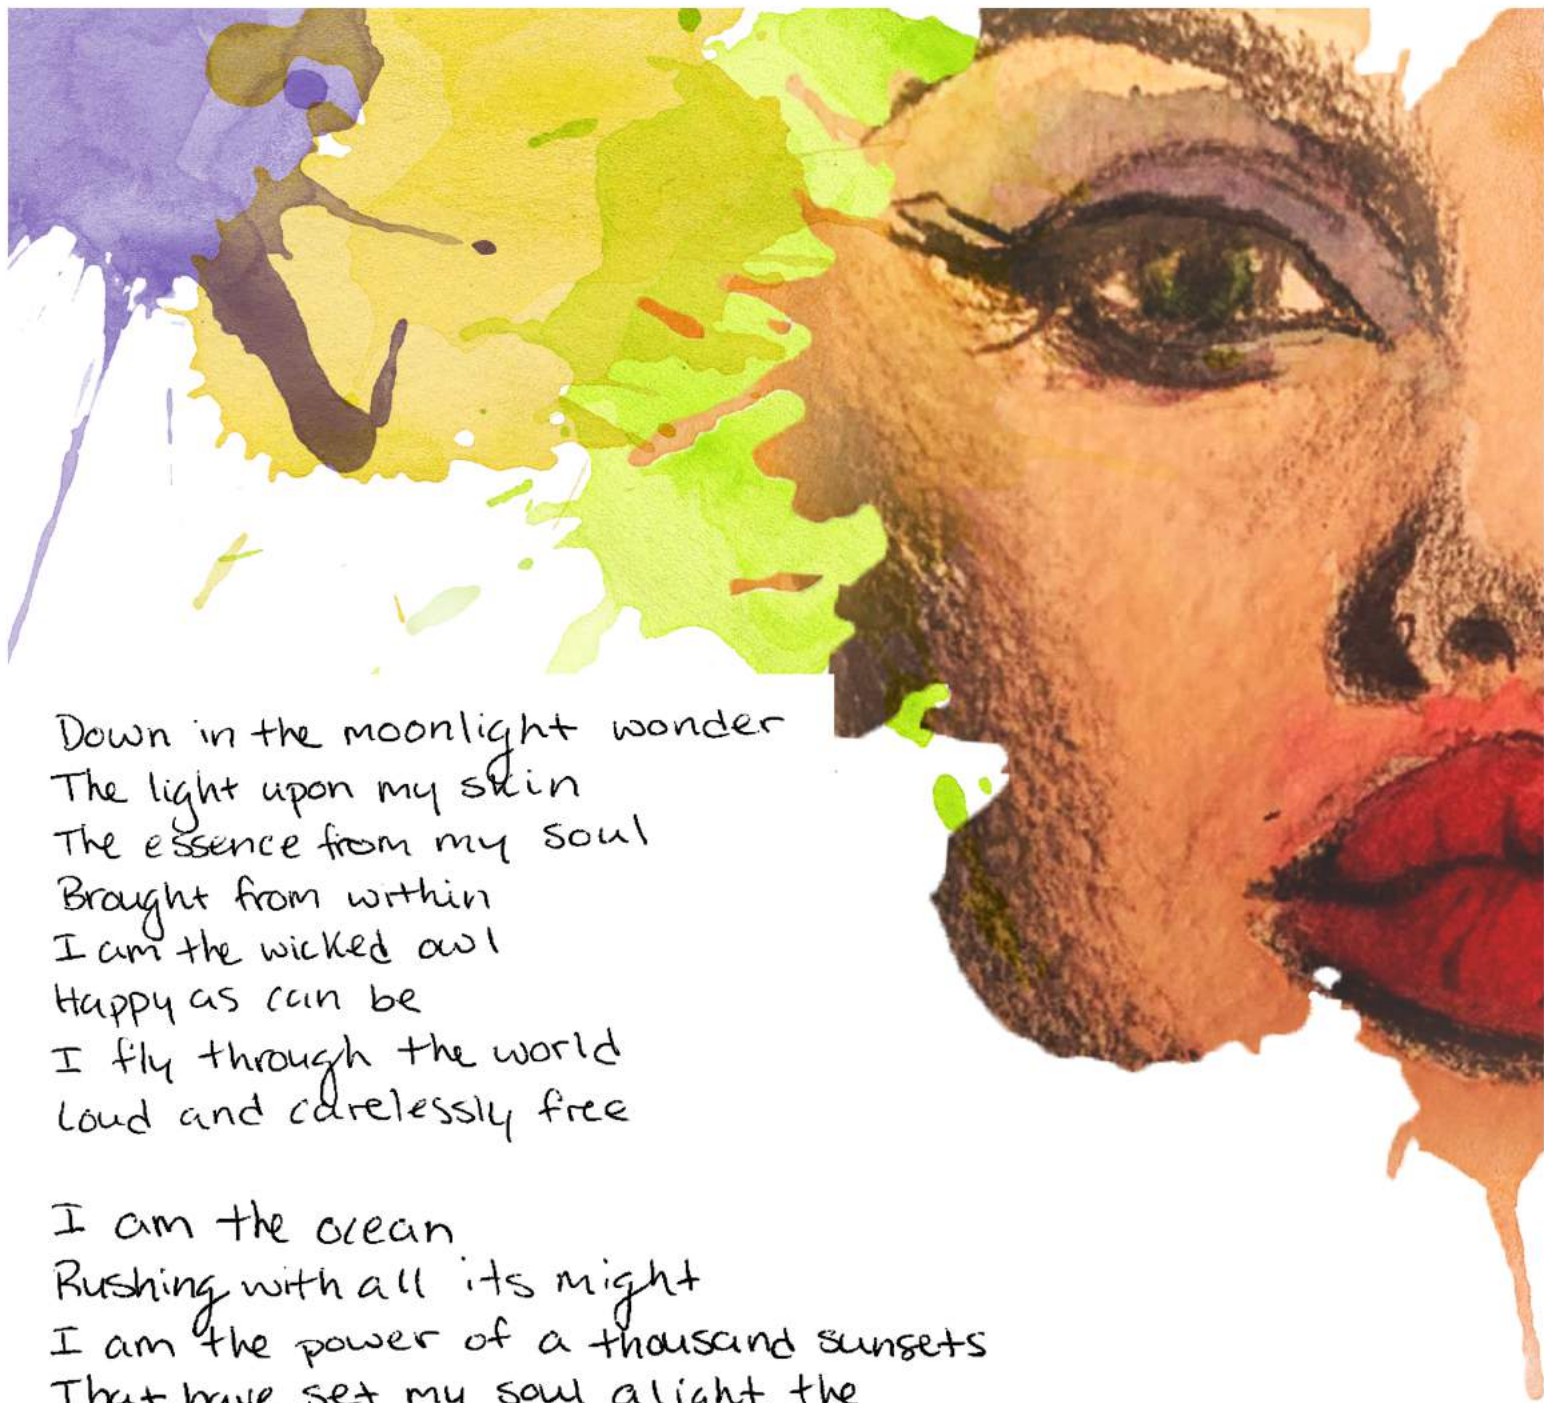 Down in the moonlight wonder
The light upon my skin
The essence from my soul
Brought from within
I am the wicked owl
Happy as can be
I fly through the world
Loud and carelessly free
I am the ocean
Rushing with all its might
I am the power of a thousand sunsets
That have set my soul alight the